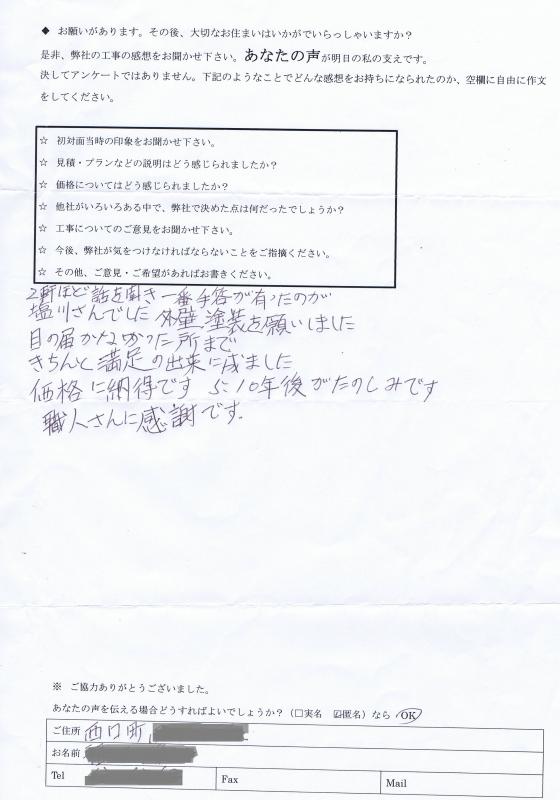 ◆ お願いがあります。その後、大切なお住まいはいかがでいらっしゃいますか？
是非、弊社の工事の感想をお聞かせ下さい。あなたの声が明日の私の支えです。
決してアンケートではありません。下記のようなことでどんな感想をお持ちになられたのか、空欄に自由に作文
をしてください。
☆ 初対面当時の印象をお聞かせ下さい。
☆ 見積・プランなどの説明はどう感じられましたか？
☆ 価格についてはどう感じられましたか？
☆ 他社がいろいろある中で、弊社で決めた点は何だったでしょうか？
☆ 工事についてのご意見をお聞かせ下さい。
☆ 今後、弊社が気をつけなければならないことをご指摘ください。
☆ その他、ご意見・ご希望があればお書きください。
2軒ほど話を聞き一番手答が有ったのが
塩川さんでした 外壁塗装を願いしました
目の届かなかった所まで
きちんと満足の出来に成ました
価格に納得です 10年後がたのしみです
職人さんに感謝です。
※ ご協力ありがとうございました。
あなたの声を伝える場合どうすればよいでしょうか？（□実名 ☑匿名）なら OK
ご住所 西口町
お名前
Tel Fax Mail